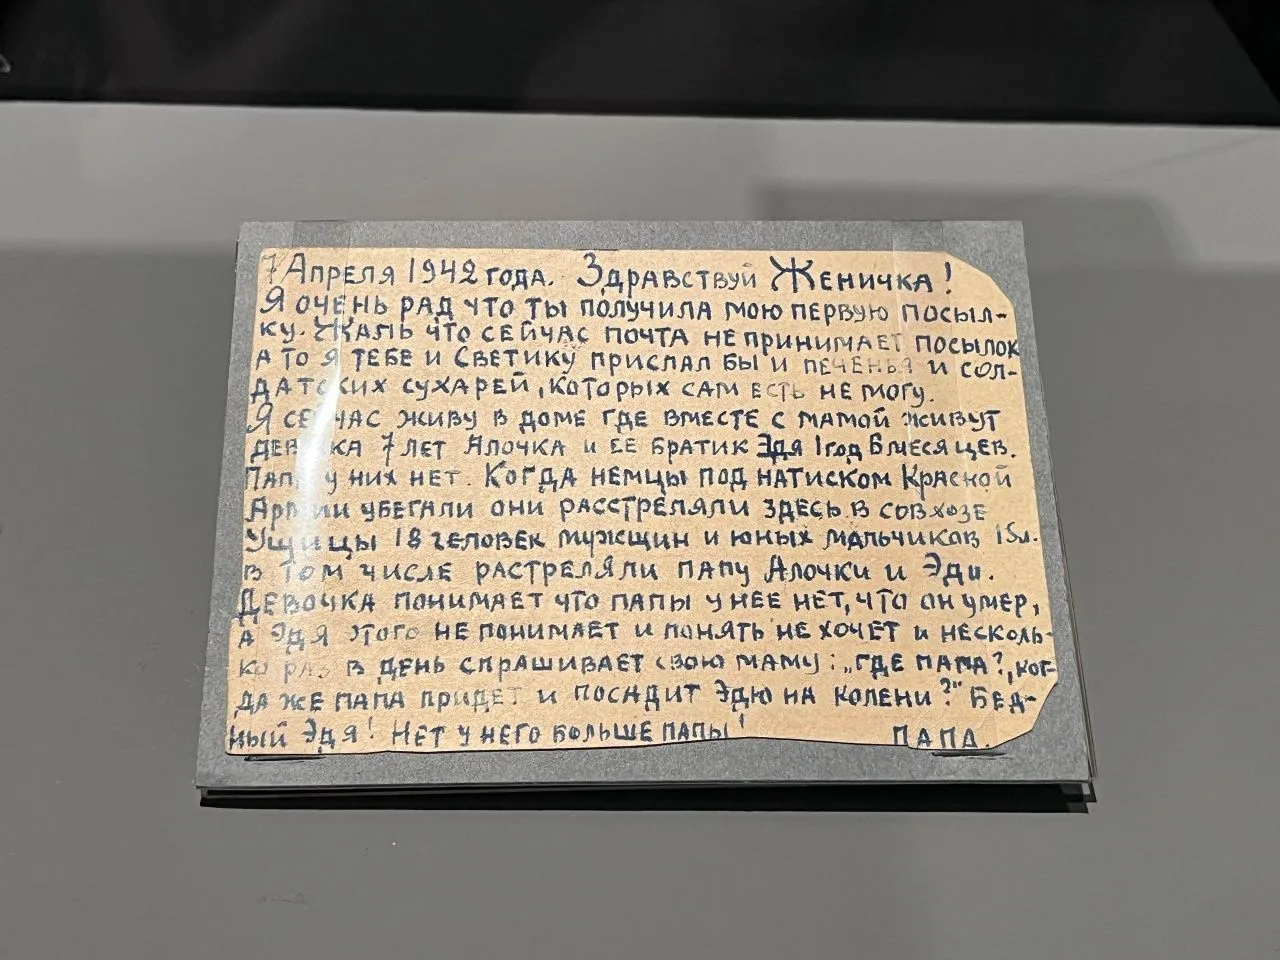 7 Апреля 1942 года. Здравствуй Женичка!
Я очень рад что ты получила мою первую посыл-
ку. Жаль что сейчас почта не принимает посылок
а то я тебе и Светику прислал бы и печенья и сол-
датских сухарей, которых сам есть не могу.
Я сейчас живу в доме где вместе с мамой живут
девочка 7 лет Алочка и ее братик Эдя 1 год 6 месяцев.
Папы у них нет. Когда немцы под натиском Красной
Армии убегали они расстреляли здесь в совхозе
Ущицы 18 человек мужщин и юных мальчиков 15 л.
в том числе растреляли папу Алочки и Эди.
Девочка понимает что папы у нее нет, что он умер,
а Эдя этого не понимает и понять не хочет и несколь-
ко раз в день спрашивает свою маму: „где папа?, ког-
да же папа придет и посадит Эдю на колени?" Бед-
ный Эдя! Нет у него больше папы! ПАПА.